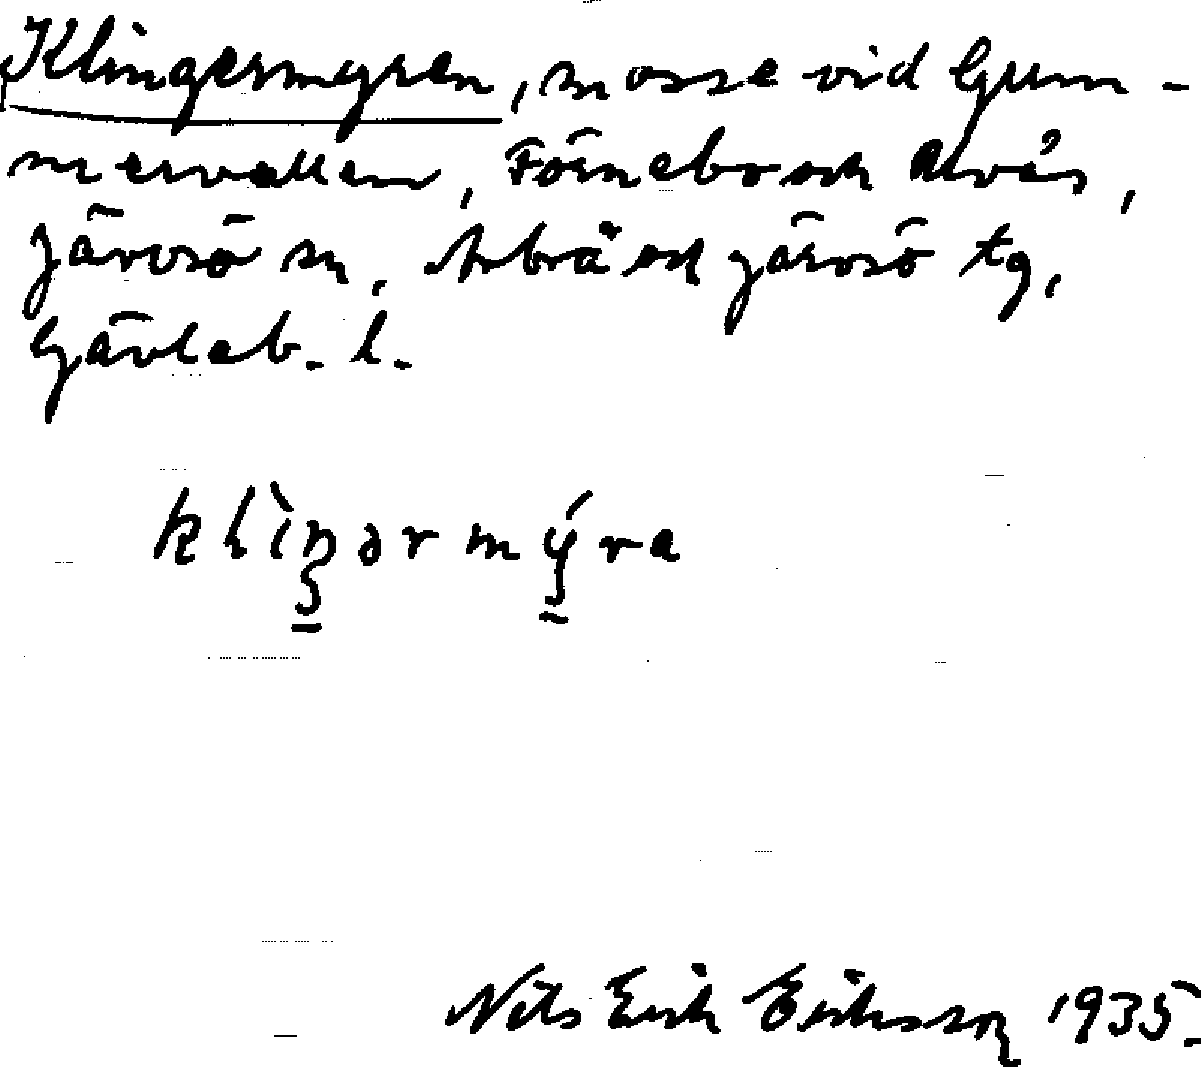 Klingermyren, mosse vid Gum-
mervallen, Förnebo och Alvås,
Järvsö sn, Arbrå och Järvsö tg,
Gävleb. l.
klìŋərmýra
Nils Erik Eriksson 1935.